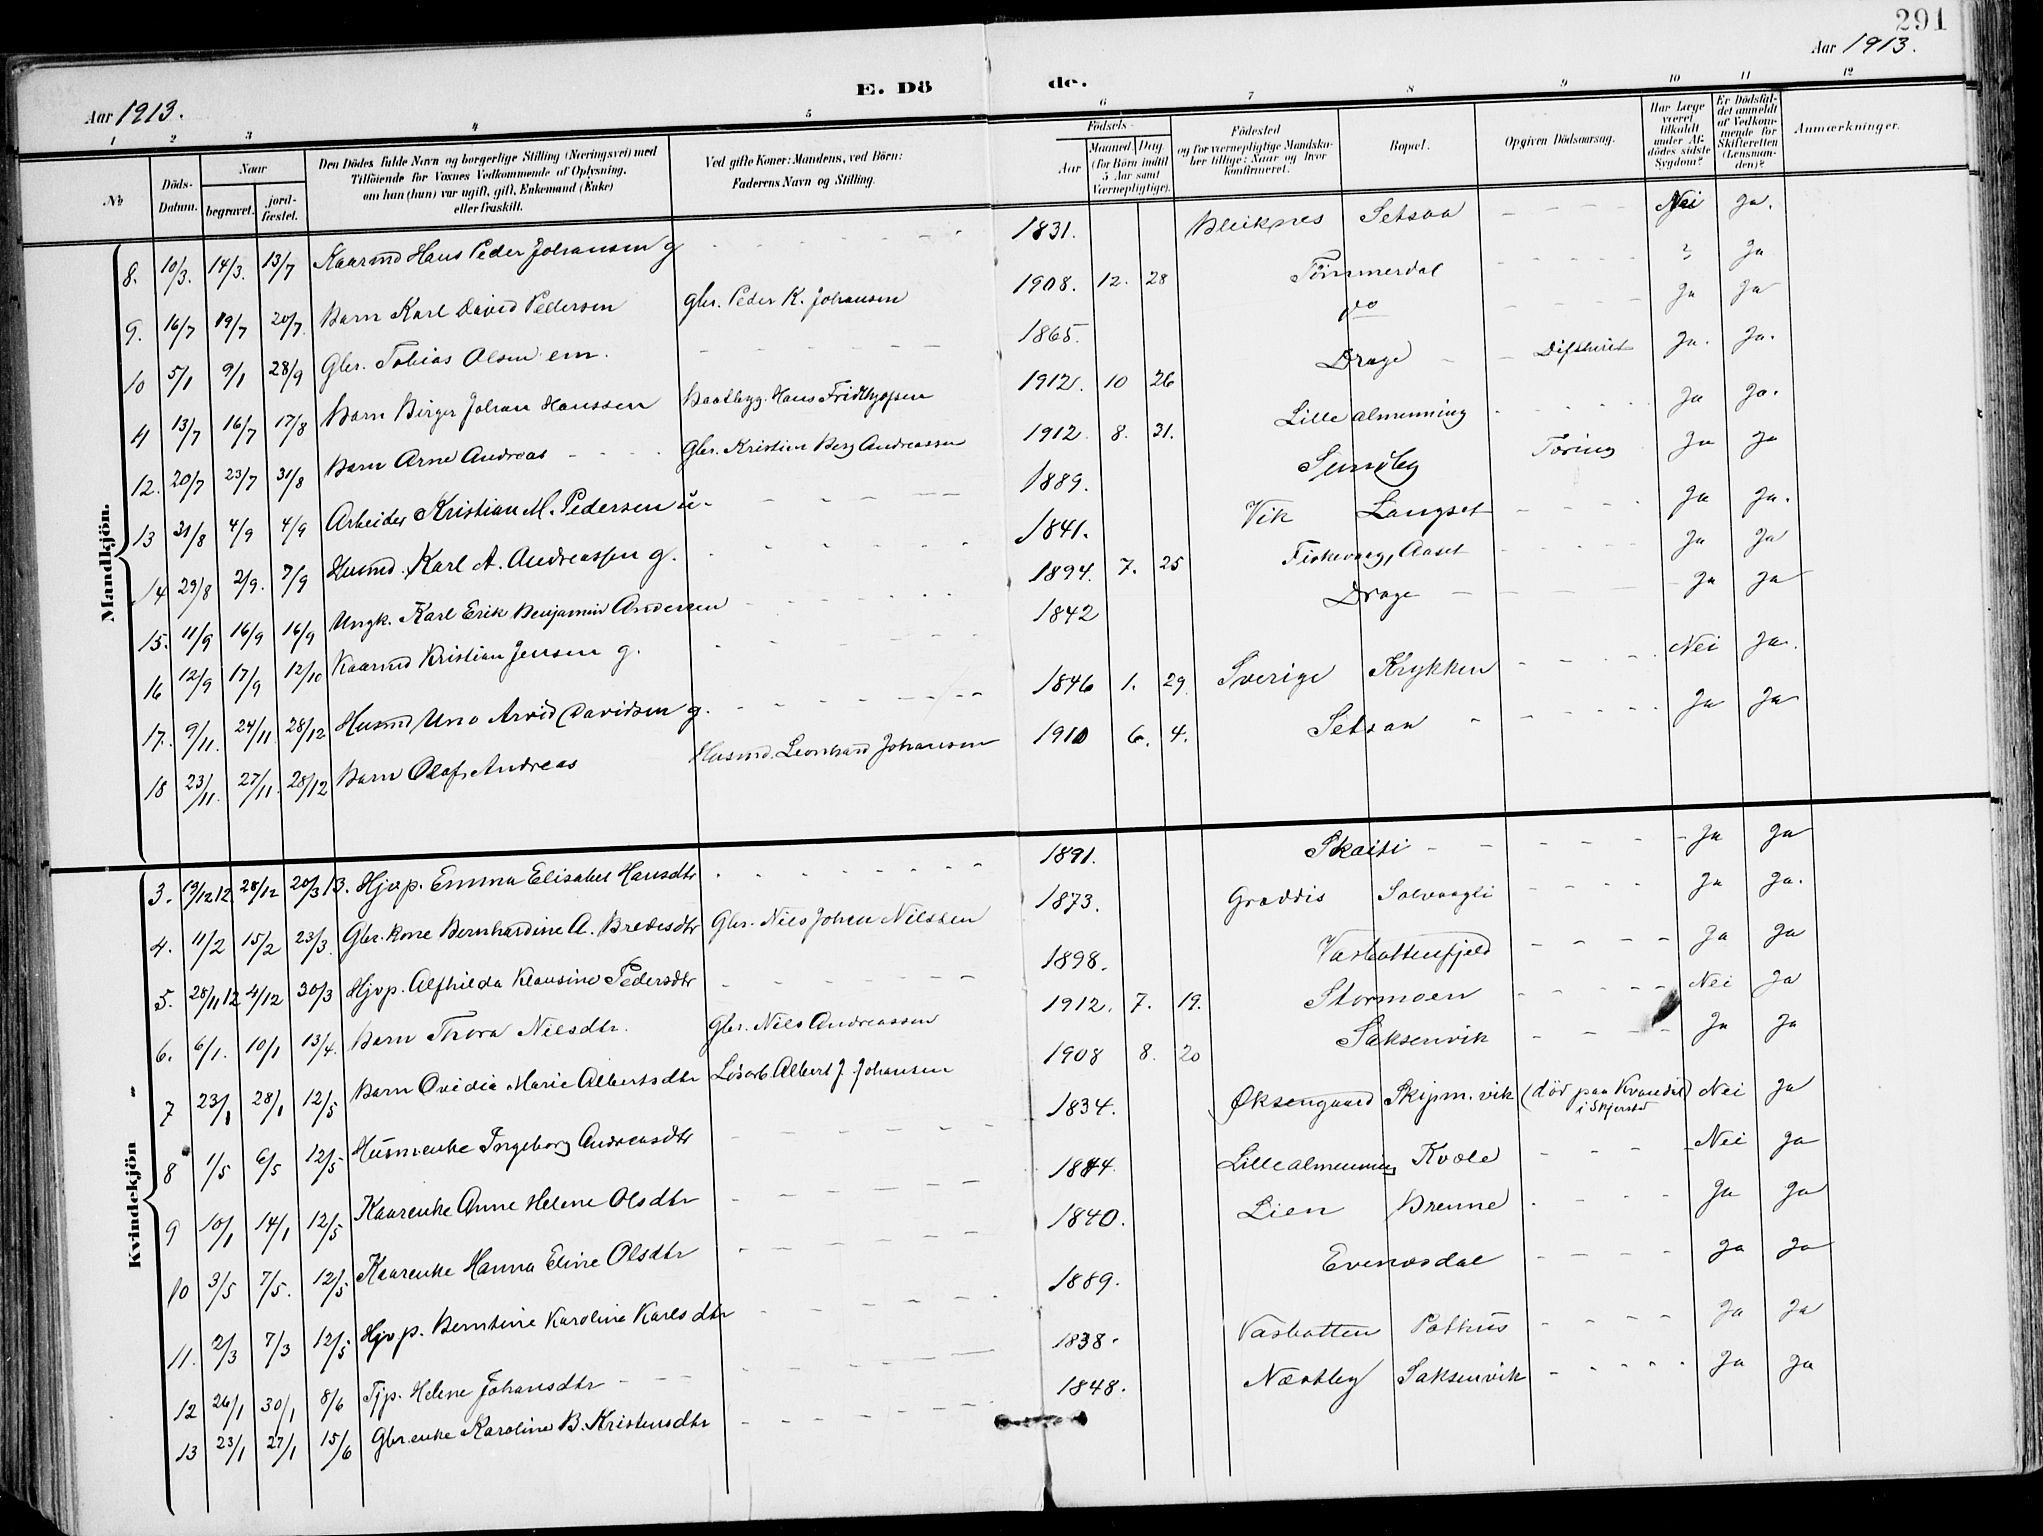 291
Aar 1913. E. Dö de. Aar 1913.
1 2 3 4 5 6 7 8 9 10 11 12
№
Döds-
Datum.
Naar
begravet.
jord-
fæstet.
Den Dödes fulde Navn og borgerlige Stilling (Næringsvei) med
Tilföiende for Voxnes Vedkommende af Oplysning,
om han (hun) var ugift, gift, Enkemand (Enke)
eller fraskilt.
Ved gifte Koner: Mandens, ved Börn:
Faderens Navn og Stilling.
Födsels-
Aar
Maaned Dag
(for Börn indtil
5 Aar samt
Værnepligtige).
Födested
og for værnepligtige Mandska-
ber tillige: Naar og hvor
konfirmeret.
Bopæl.
Opgiven Dödsaarsag.
Har Læge
været
tilkaldt
under Af-
dödes sidste
Sygdom?
Er Dödsfal-
det anmeldt
af Vedkom-
mende for
Skifteretten
(Lensman-
den)?
Anmærkninger.
Mandkjön.
8. 10/3. 14/3. 13/7 Kaarmd Hans Peder Johansen g 1831. Bleiknes Setsaa Nei Ja.
9. 16/7 19/7 20/7. Barn Karl David Pedersen Gbr. Peder K. Johansen 1908. 12. 28 Tömmerdal ? Ja
10 5/1 9/1 28/9 Gbr. Tobias Olsen em. 1865. do Ja Ja
11 13/7 16/7 17/8 Barn Birger Johan Hanssen Baatbyg. Hans Fridthjofsen 1912. 10 26 Drage Difterit Ja. Ja.
12. 20/7 23/7 31/8 Barn Arne Andreas Gbr. Kristian Berg Andreassen 1912. 8. 31. Lille almenning Ja Ja.
13 31/8 4/9 4/9 Arbeider Kristian M. Pedersen u. 1889. Sundby Tæring Ja Ja
14 29/8 2/9. 7/9 Husmd. Karl A. Andreassen g. 1841. Vik Langset Ja Ja.
15. 11/9 16/9 16/9 Ungk. Karl Erik Benjamin Andersen 1894. 7. 25 Fiskevaag, Aaset Ja Ja
16 12/9 17/9 12/10 Kaarmd Kristian Jensen g. 1842 Drage Ja Ja
17. 9/11. 24/11 28/12 Husmd Uno Arvid Davidsen g. 1846 1. 29 Sverige Krykken Nei Ja.
18 23/11. 27/11. 28/12 Barn Olaf Andreas Husmd. Leonhard Johansen 1910 6. 4. Setsaa Ja Ja
Kvindekjön
3. 19/12 12. 28/12 20/3 13. Hjvp. Emma Elisabet Hansdtr 1891. Skaiti Ja Ja
4. 11/2 15/2 23/3. Gbr. kone Bernhardine A. Bredesdtr Gbr. Nils Johan Nilssen 1873. Graddis Solvaagli Ja Ja.
5. 28/11 12 4/12 30/3 Hjvp. Alfhilda Klausine Pedersdtr 1898. Vasbottenfjeld Ja Ja
6. 6/1. 10/1 13/4. Barn Thora Nilsdtr. Gbr. Nils Andreassen 1912. 7. 19. Stormoen Nei Ja
7 23/1 28/1 12/5 Barn Ovidia Marie Albertsdtr Lösarb. Albert J. Johansen 1908 8. 20 Saksenvik Ja Ja
8 1/5 6/5 12/5 Husm.enke Ingeborg Andreasdtr 1834. Øksengaard Skipm. vik (död paa Kvandal) Nei Ja
i Skjerstad
9 10/1 14/1 12/5 Kaarenke Anne Helene Olsdtr 1844. Lillealmenning Kvæle Nei Ja
10 3/5 7/5. 12/5 Kaarenke Hanna Eline Olsdtr 1840. Lien Brenne Ja Ja
11. 2/3 7/3 12/5 Hjvp. Berntine Karoline Karlsdtr 1889. Evenesdal Ja Ja
12 26/1 30/1 8/6 Tjp. Helene Johansdtr 1838. Vasbotten Pothus Ja Ja
13 23/1 27/1 15/6 Gbr.enke Karoline B. Kristensdtr 1848. Næstby Saksenvik Ja Ja